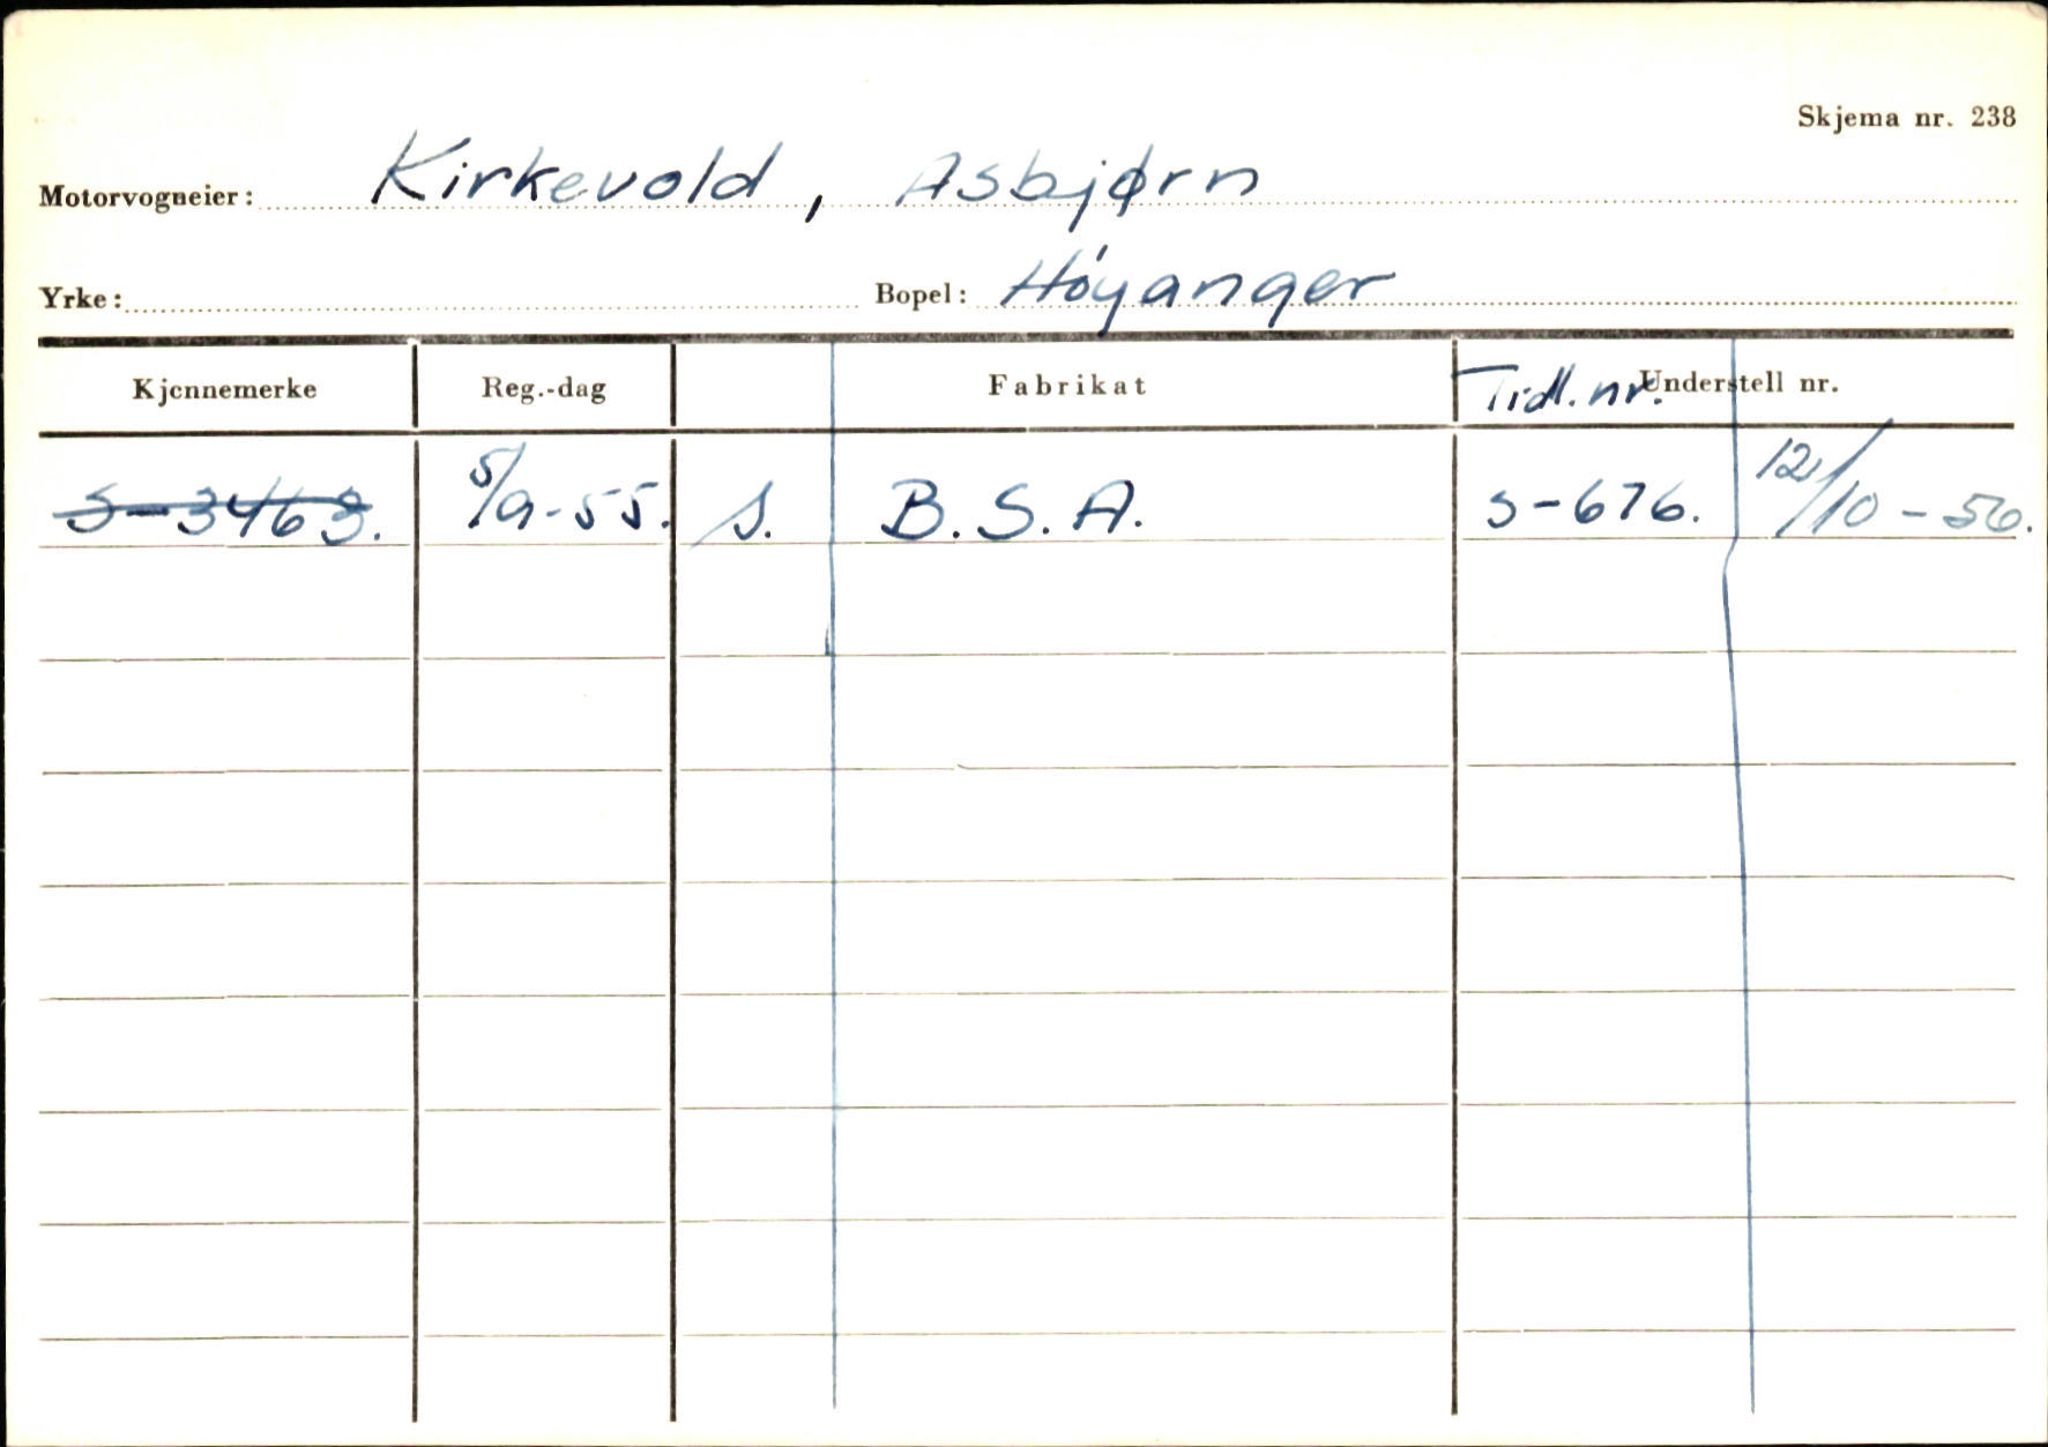 Skjema nr. 238
Motorvogneier: Kirkevold, Asbjørn
Yrke: Bopel: Høyanger
Kjennemerke Reg.-dag Fabrikat Tidl. nr. Understell nr.
S-3463. 5/9-55. S. B.S.A. S-676. 12/10-56.